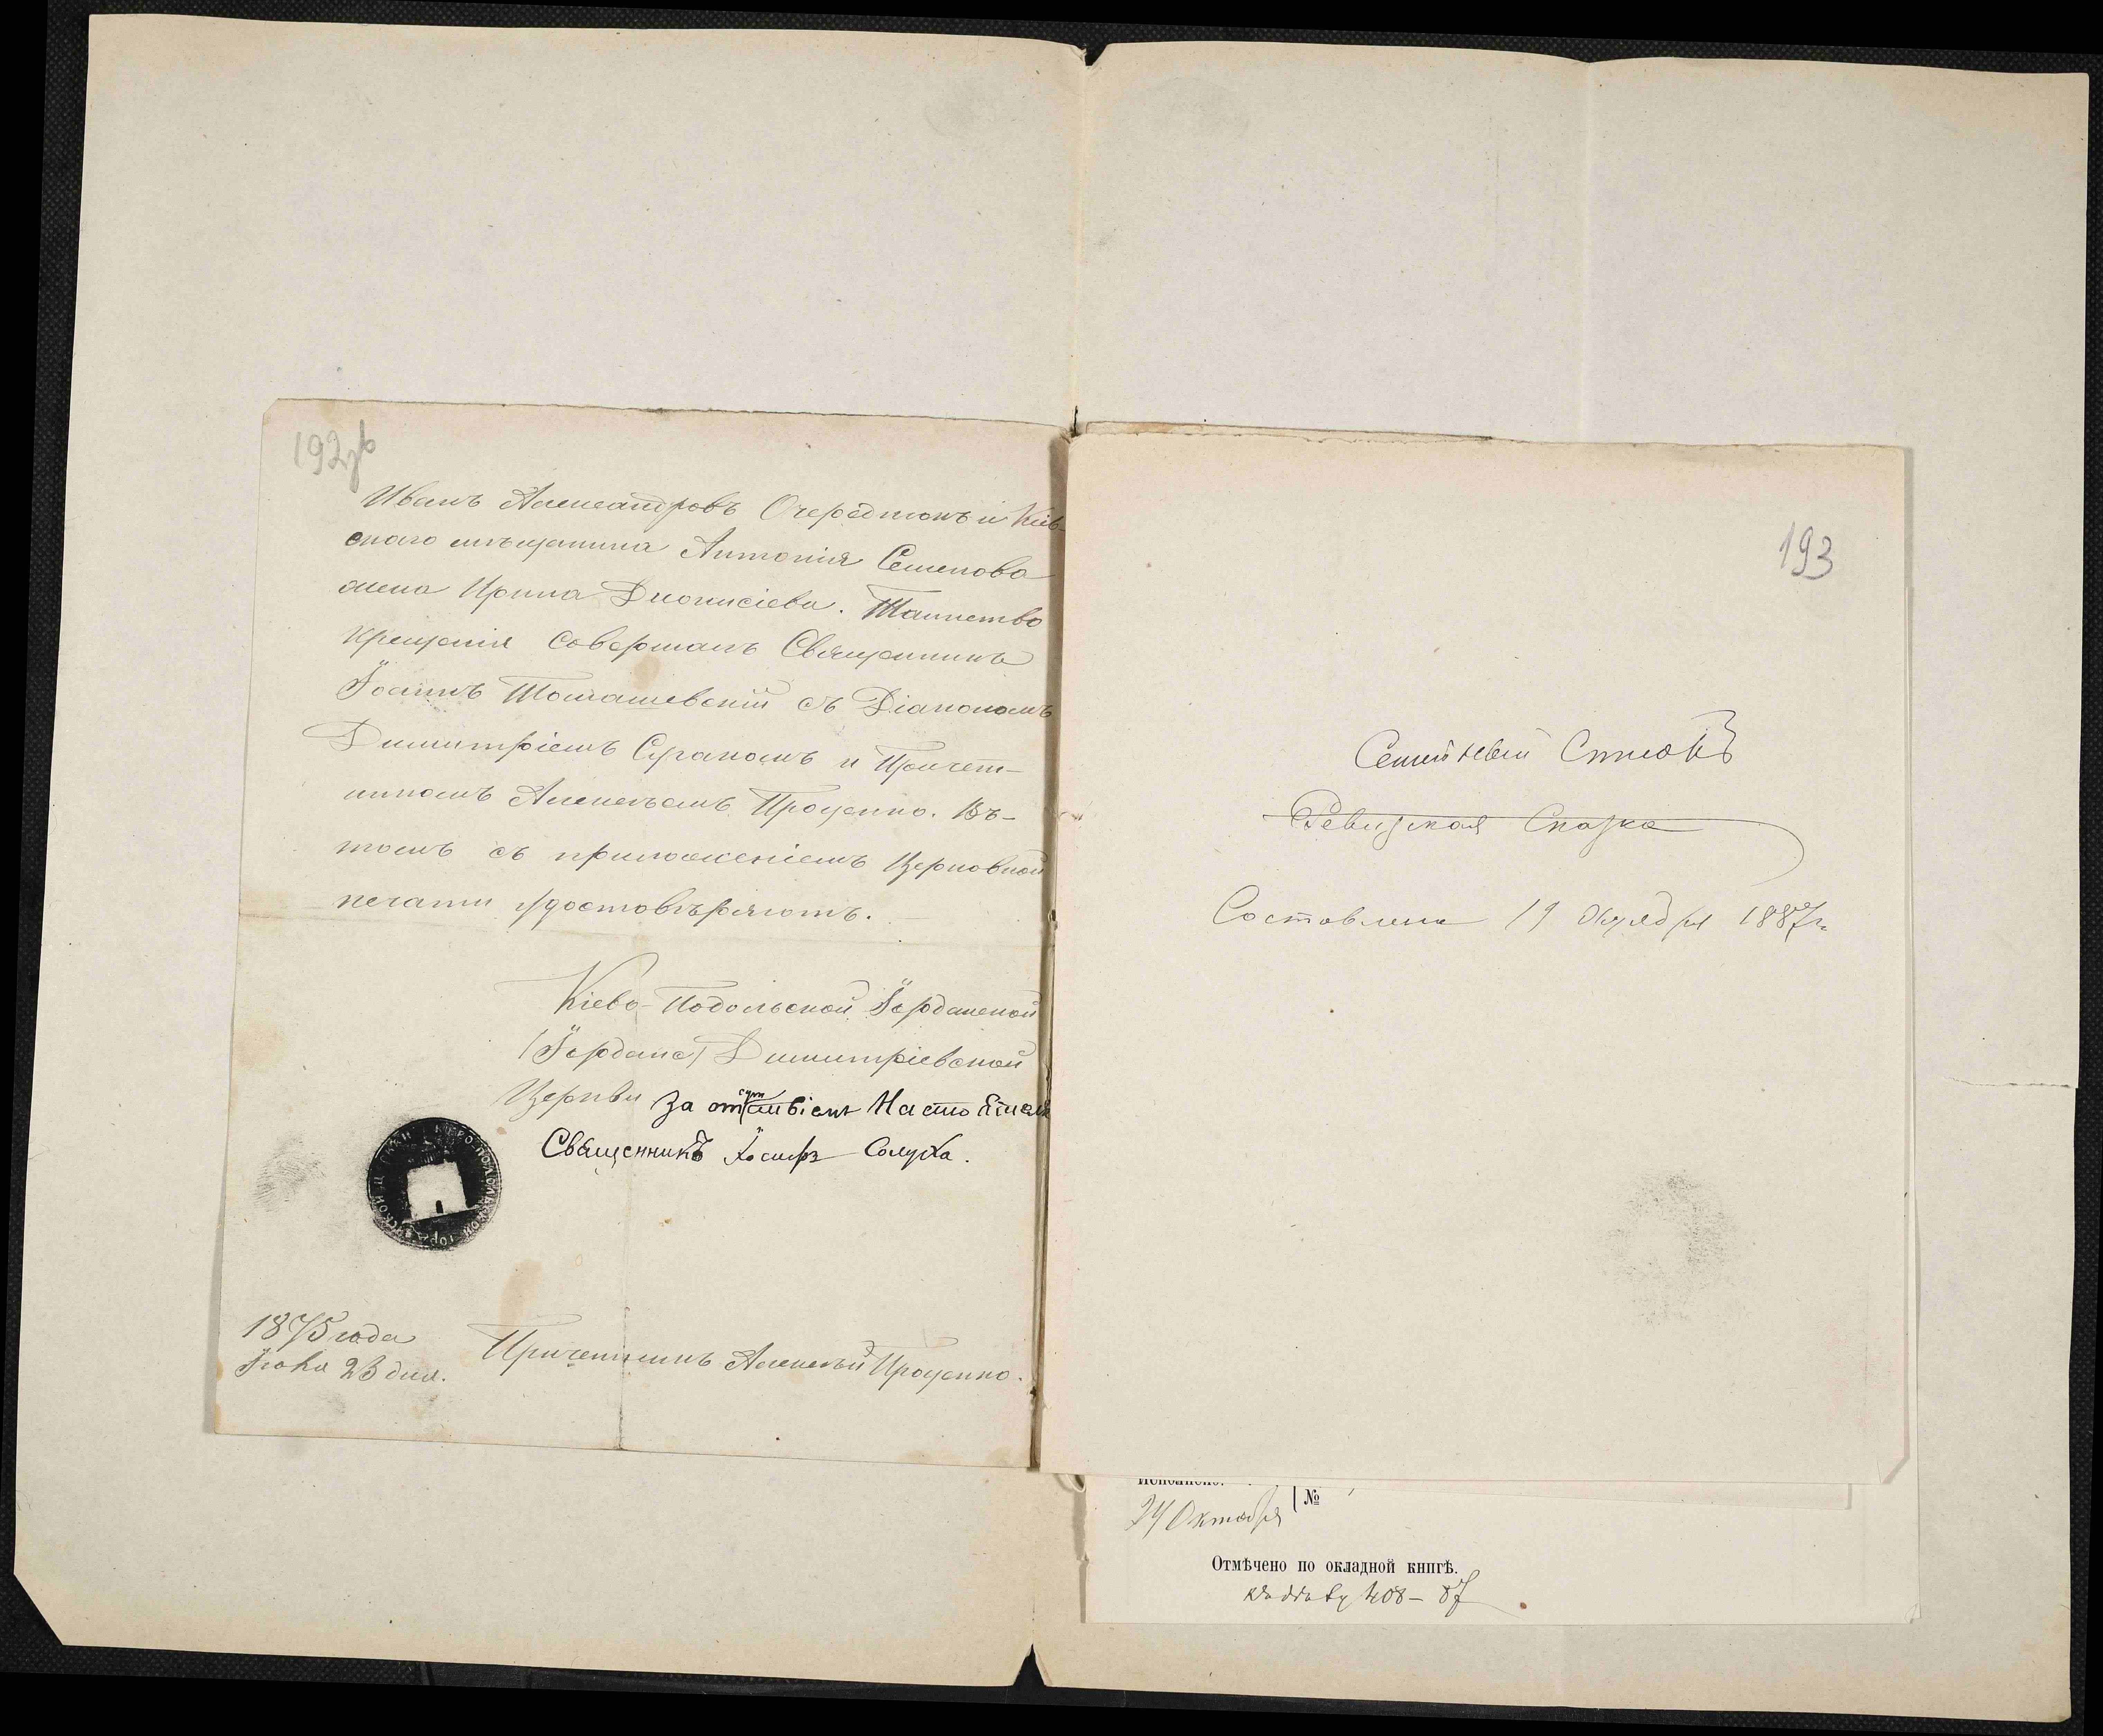 192зв
Иванъ Александровъ Очередионъ и Кіев-
скаго мѣщанина Антонія Семенова
жена Ирина Діонисіева. Таинство
крещенія совершалъ Священникъ
Іоаннъ Томашевскій съ Діакономъ
Димитріемъ и Причет-
никомъ Алексѣемъ Проценко. Въ-
томъ съ приложеніемъ Церковной
печати удостовѣряютъ.
Кіево-Подольской Іорданской
(Іорданс) Димитріевской
Церкви за отсутствіемъ Настоятеля
Священникъ Іосифъ Солуха.
1875 года
23 дня.
Причетникъ Алексѣй Проценко.
193
Семейный Списокъ
Ревизская Сказка
Составлена 19 Октября 1887г.
Исполнено.
№
24 Октября
Отмѣчено по окладной книгѣ.
408 – 87